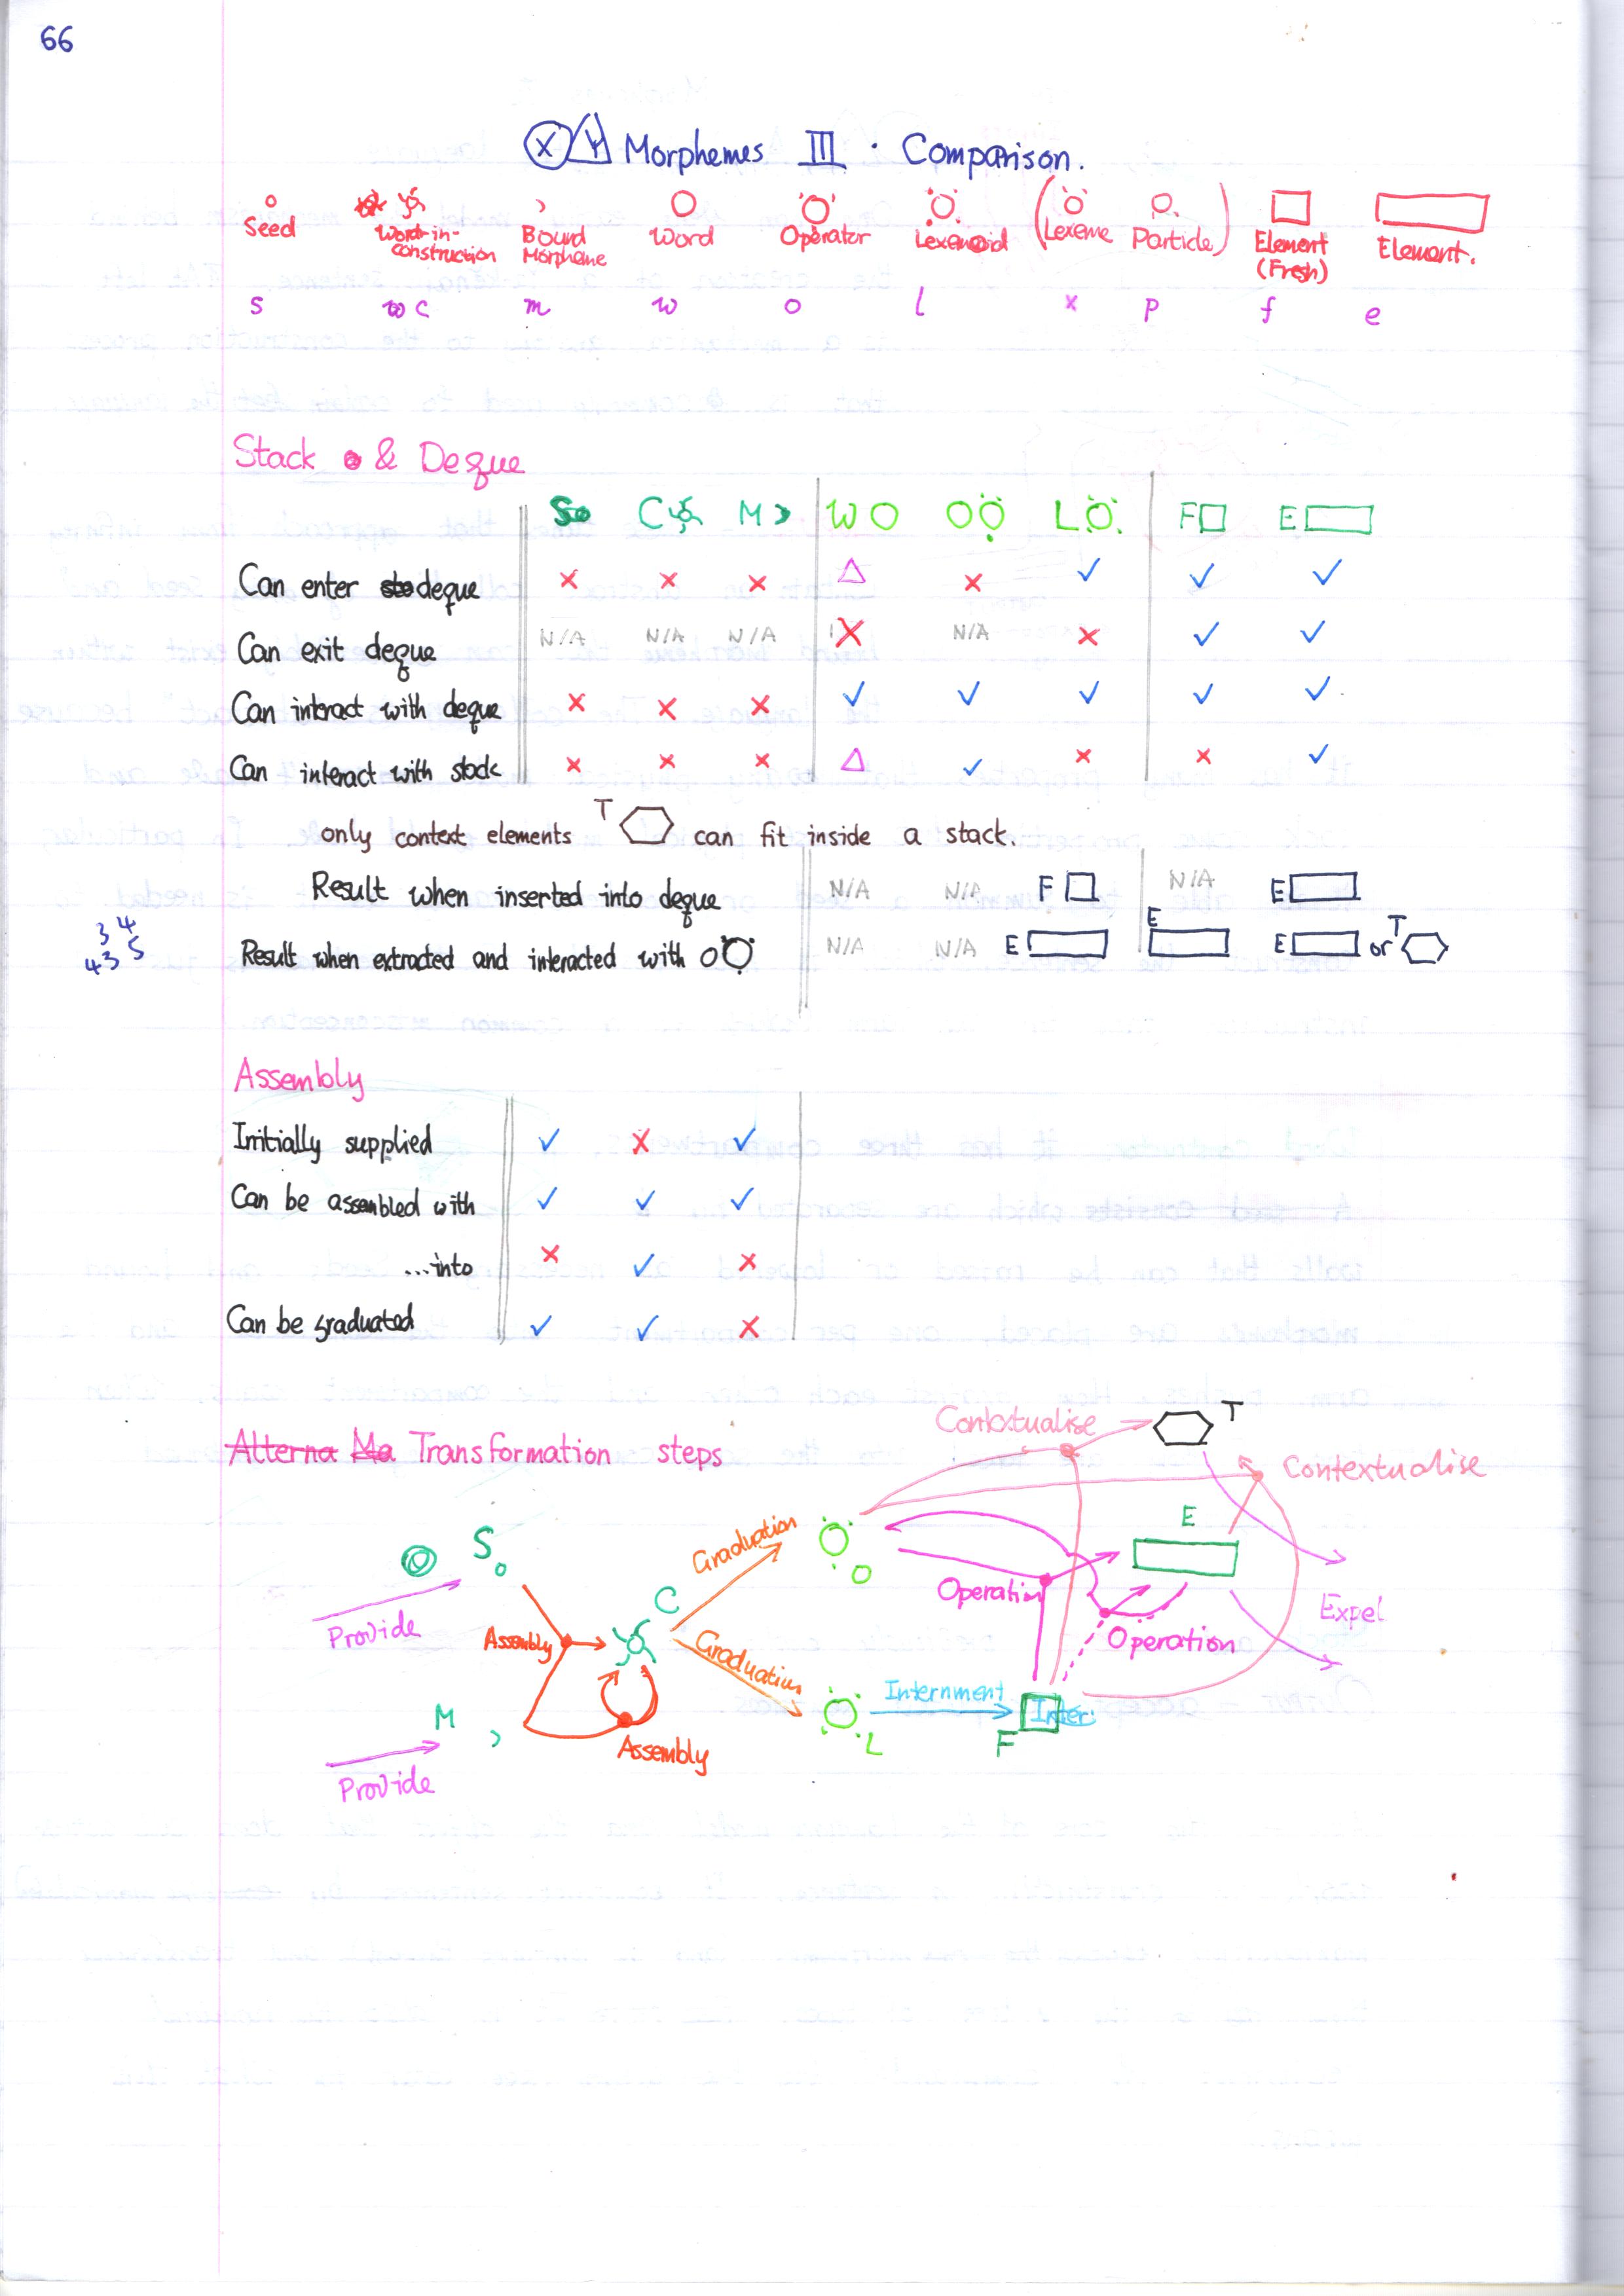 66
X Y Morphemes III · Comparison.
Seed Word-in-construction Bound Morpheme Word Operator Lexemoid (Lexeme Particle) Element (Fresh) Element.
s c m w o l x p f e
Stack & Deque
S C M W O L F E
Can enter deque × × × △ × ✓ ✓ ✓
Can exit deque N/A N/A N/A × N/A × ✓ ✓
Can interact with deque × × × ✓ ✓ ✓ ✓ ✓
Can interact with stack × × × △ ✓ × × ✓
only context elements T can fit inside a stack.
Result when inserted into deque N/A N/A F N/A E
3 4
4 3 5
Result when extracted and interacted with O N/A N/A E E E or T
Assembly
Initially supplied ✓ × ✓
Can be assembled with ✓ ✓ ✓
...into × ✓ ×
Can be graduated ✓ ✓ ×
Alterna Ma Transformation steps
Contextualise T
Contextualise
S
Provide
Assembly
C
Graduation
O
Operation
E
Expel
Operation
Graduation
M
Provide
Assembly
L
Internment
Inter.
F